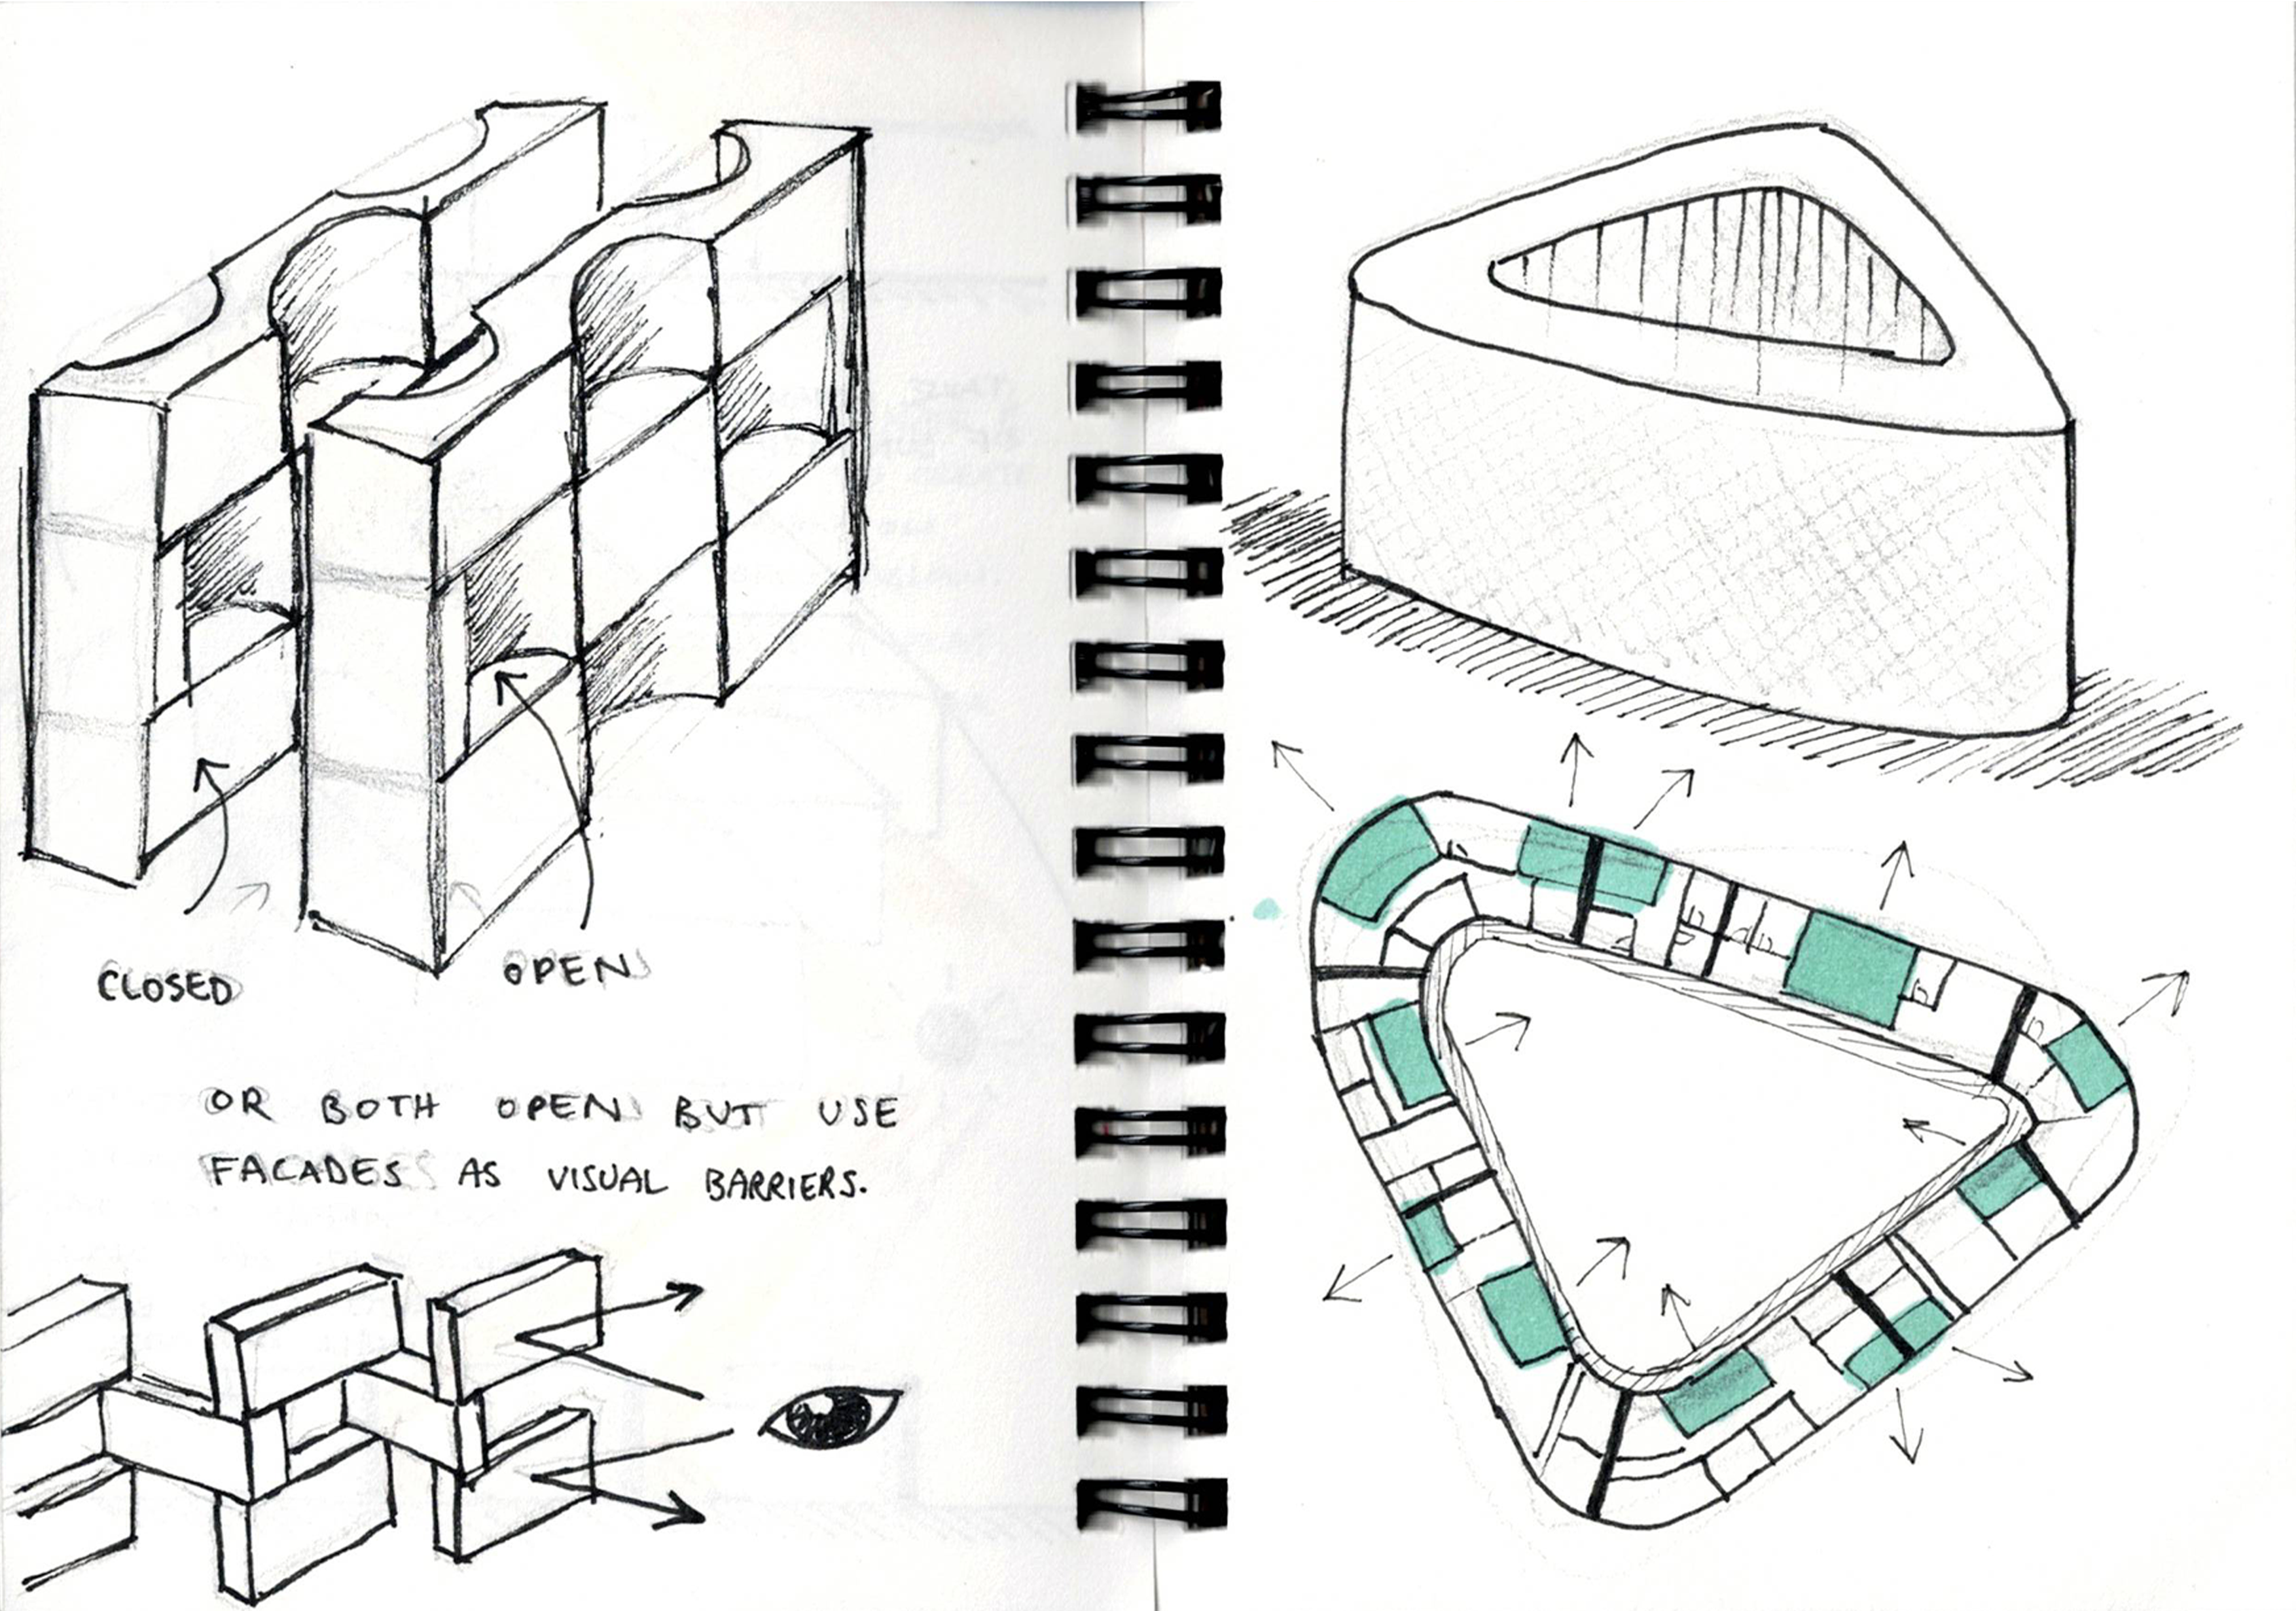 CLOSED
OPEN
OR BOTH OPEN BUT USE
FACADES AS VISUAL BARRIERS.